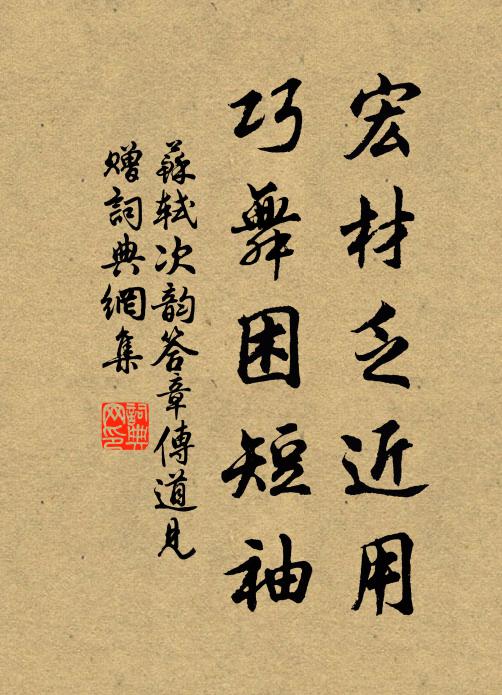 宏材乏近用
巧舞困短袖
蘇軾次韵答章傳道見
贈詞典網集
詞典
网印